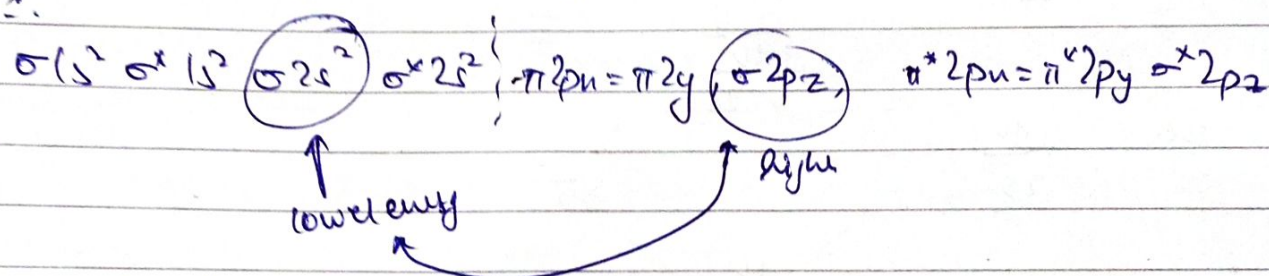 σ1s² σ* 1s² σ2s² σ* 2s² π2px = π2y σ2pz, π* 2px = π* 2py σ* 2pz
lower energy